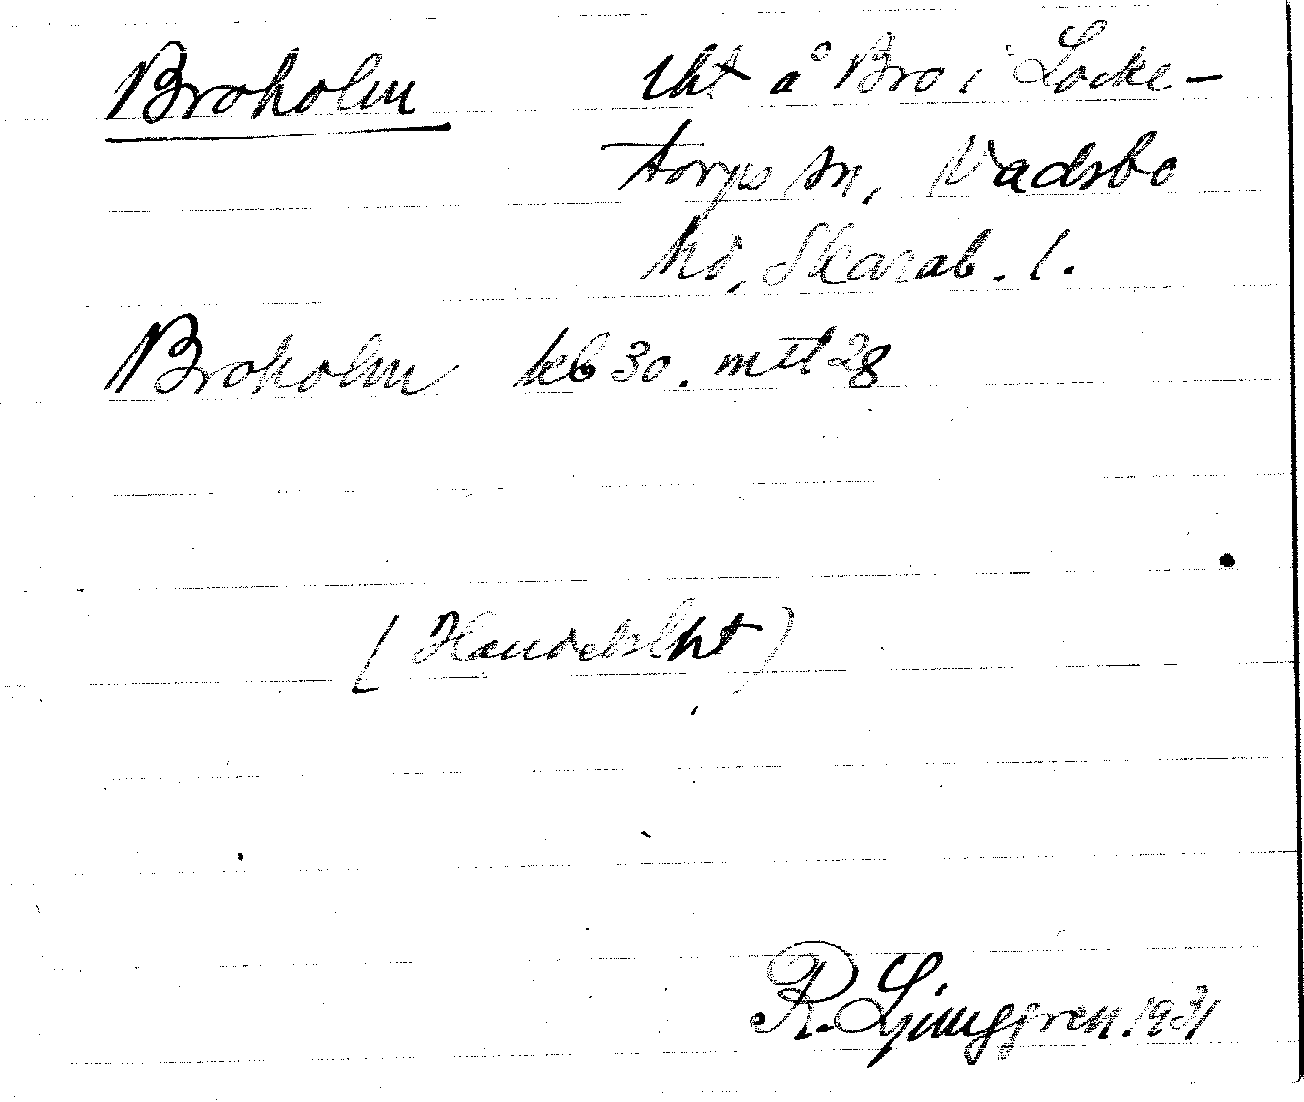 Broholm lht å Bro i Locke-
torps sn, Vadsbo
hd, Skarab. l.
Broholm kb 30. mtl 28
(Handelslht)
R. Ljunggren. 1931